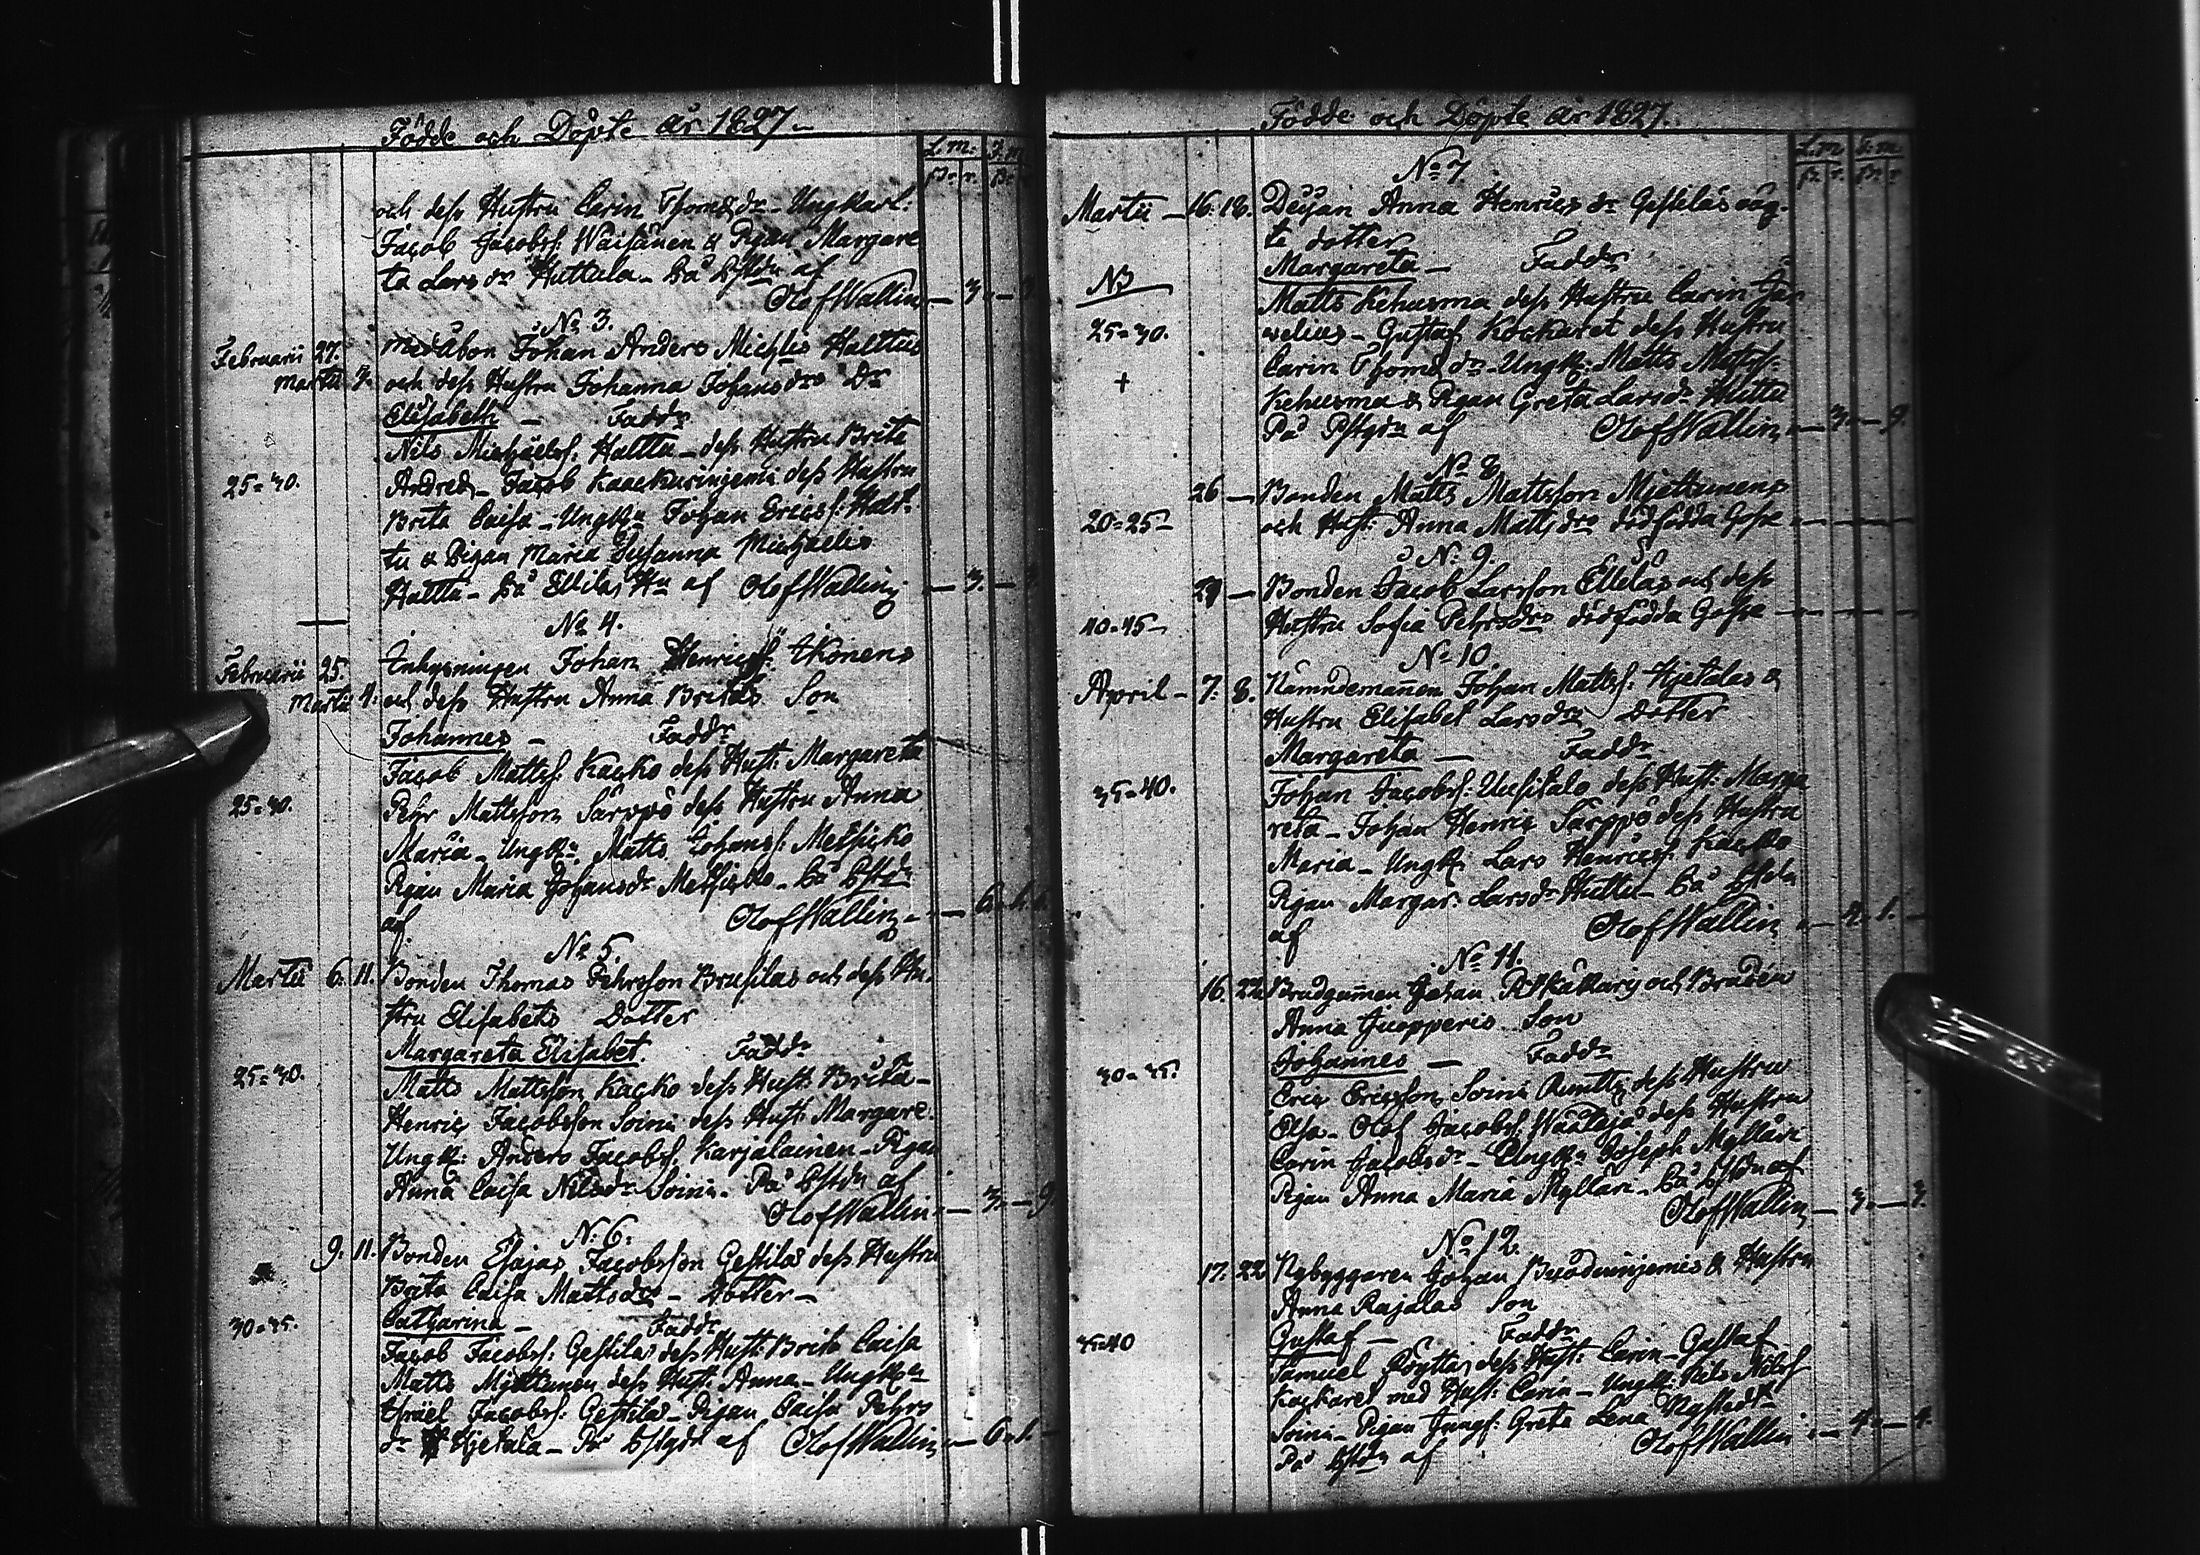 Födde och Döpte år 1827
L.m. F.m.
och dess Hustru Carin Thomæ dr Ungkarl:
Jacob Jacobss: Waisänen & Pigan Margare
ta Lars dr Huttula på af
Olof Wallin — 3 —
No 3.
Februarii 27. Åbon Johan Anders Michls Halttus
Martii 4. och dess Hustru Johanna Johansdrs Dr
Elisabeth — Faddr
Nils Michaëlss. Hattu dess Hustru Brita
25=30. Andreds Jacob dess Hustru
Brita Caisa Ungkn Johan Ericss:
tu & Pigan Maria Susanna Michaelis
Hattu på Hn af Olof Wallin — 3. —
No 4.
Februarii 25. Inhysningen Johan Henricss:
Martii 4. och dess Hustru Anna Britas Son
Johannes — Faddr
Jacob Mattss: Kacko dess Hust: Margareta
25=30. Pehr Mattsson Särppö dess Hustru Anna
Maria — Ungk: Matts Johanss: Metsicko
Pigan Maria Johansdr Metsicko på
af Olof Wallin — 6.
No 5.
Martii 6. 11. Bonden Thomas Pehrsson Brusilas och dess Hu-
stru Elisabets Dotter
Margareta Elisabet. Faddr
25=30. Matts Mattsson Kacko dess Hust: Brita —
Henric Jacobsson Soini dess Hust: Margare.
Ungk: Anders Jacobss Karjalainen — Pigan
Anna Caisa Nilsdr Soini. På af
Olof Wallin — 3 — 9
N: 6:
9. 11. Bonden Esajas Jacobsson Gestilas dess Hustru
Brita Caisa Mattsdrs — Dotter —
30=35. Catharina — Faddr
Jacob Jacobss: Gestilas dess Hust: Brita Caisa
Matts Mjettunen dess Hust: Anna — Ungkn
Israel Jacobss: Gestilas — Pigan Caisa Pehrs
dr Hjetala — På af Olof Wallin — 6
Födde och Döpte år 1827.
L.m F.m.
No 7
Martii — 16. 18. Deijan Anna Henrics dr Gestilas oäg-
ta dotter
NB Margareta — Faddr
Matts Kehusma dess Hustru Carin
25=30. Gustaf Kockaret dess Hustru
Carin Thomæ dr — Ungk: Matts Matss:
+ Kehusma & Pigan Greta Larsdr Huttu
På af Olof Wallin — 3 — 9.
No 8
26 — Bonden Matts Mattsson Mjettunens
20=25 — och Hust: Anna Mattsdrs dödfödda Gosse
No 9.
29 — Bonden Jacob Larsson Ellilas och dess
40=45 — Hustru Sofia Pehrsdrs dödfödda Gosse
No 10.
April — 7. 8. Nämndemannen Johan Mattss: Hjetalas &
Hustru Elisabet Larsdrs Dotter
Margareta — Faddr
35=40. Johan Jacobss: Uusitalo dess Hust: Marga
reta — Johan Henric Särppö dess Hustru
Maria — Ungk: Lars Henricss: Kacko
Pigan Margar: Larsdr Huttu — på
af Olof Wallin — 4. 1. —
No 11.
16. 22 Brudgumen Johan och Bruden
Anna Juopperis Son
30=35. Johannes — Faddr
Eric Ericsson Soini dess Hustru
Elsa — Olof Jacobss: Wäätäjä dess Hustru
Carin Jacobsdr — Ungkn Joseph Mylläri
Pigan Anna Maria Mylläri — på af
Olof Wallin — 3. — 3.
No 12.
17. 22 Nybyggaren Johan & Hustru
Anna Rajalas Son
35=40 Gustaf — Faddr
Samuel dess Hust: Carin — Gustaf
Kockaret med Hust: Carin — Ungk: Nils Nilss
Soini — Pigan Jungf: Greta Lena
På af Olof Wallin — 4. — 4.